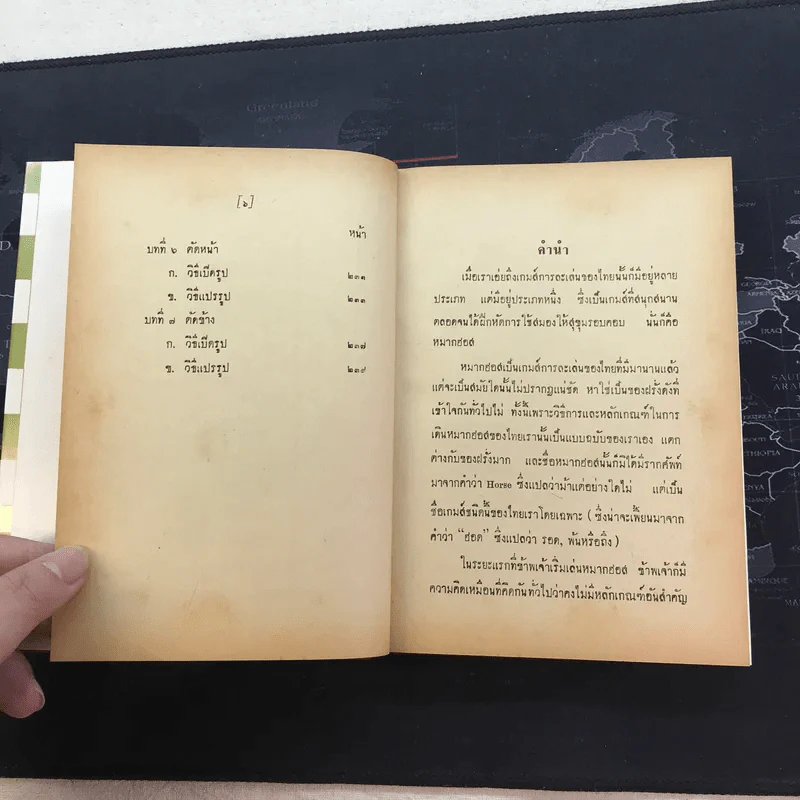 [๖]
หน้า
บทที่ ๖ คัดหน้า
ก. วิธีเบ็ดรูป ๒๓๑
ข. วิธีแปรรูป ๒๓๓
บทที่ ๗ คัดข้าง
ก. วิธีเบ็ดรูป ๒๓๗
ข. วิธีแปรรูป ๒๓๙
คำนำ
เมื่อเราเอ่ยถึงเกมส์การละเล่นของไทยนั้นก็มีอยู่หลาย
ประเภท แต่มีอยู่ประเภทหนึ่ง ซึ่งเป็นเกมส์ที่สนุกสนาน
ตลอดจนได้ฝึกหัดการใช้สมองให้สุขุมรอบคอบ นั้นก็คือ
หมากฮอส
หมากฮอสเป็นเกมส์การละเล่นของไทยที่มีมานานแล้ว
แต่จะเป็นสมัยใดนั้นไม่ปรากฏแน่ชัด หาใช่เป็นของฝรั่งดังที่
เข้าใจกันทั่วไปไม่ ทั้งนี้เพราะวิธีการและหลักเกณฑ์ในการ
เดินหมากฮอสของไทยเรานั้นเป็นแบบฉบับของเราเอง แตก
ต่างกับของฝรั่งมาก และชื่อหมากฮอสนั้นก็มิได้มีรากศัพท์
มาจากคำว่า Horse ซึ่งแปลว่าม้าแต่อย่างใดไม่ แต่เป็น
ชื่อเกมส์ชนิดนี้ของไทยเราโดยเฉพาะ ( ซึ่งน่าจะเพี้ยนมาจาก
คำว่า “ฮอด” ซึ่งแปลว่า รอด, พ้นหรือถึง )
ในระยะแรกที่ข้าพเจ้าเริ่มเล่นหมากฮอส ข้าพเจ้าก็มี
ความคิดเหมือนที่คิดกันทั่วไปว่าคงไม่มีหลักเกณฑ์อันสำคัญ
Greenland